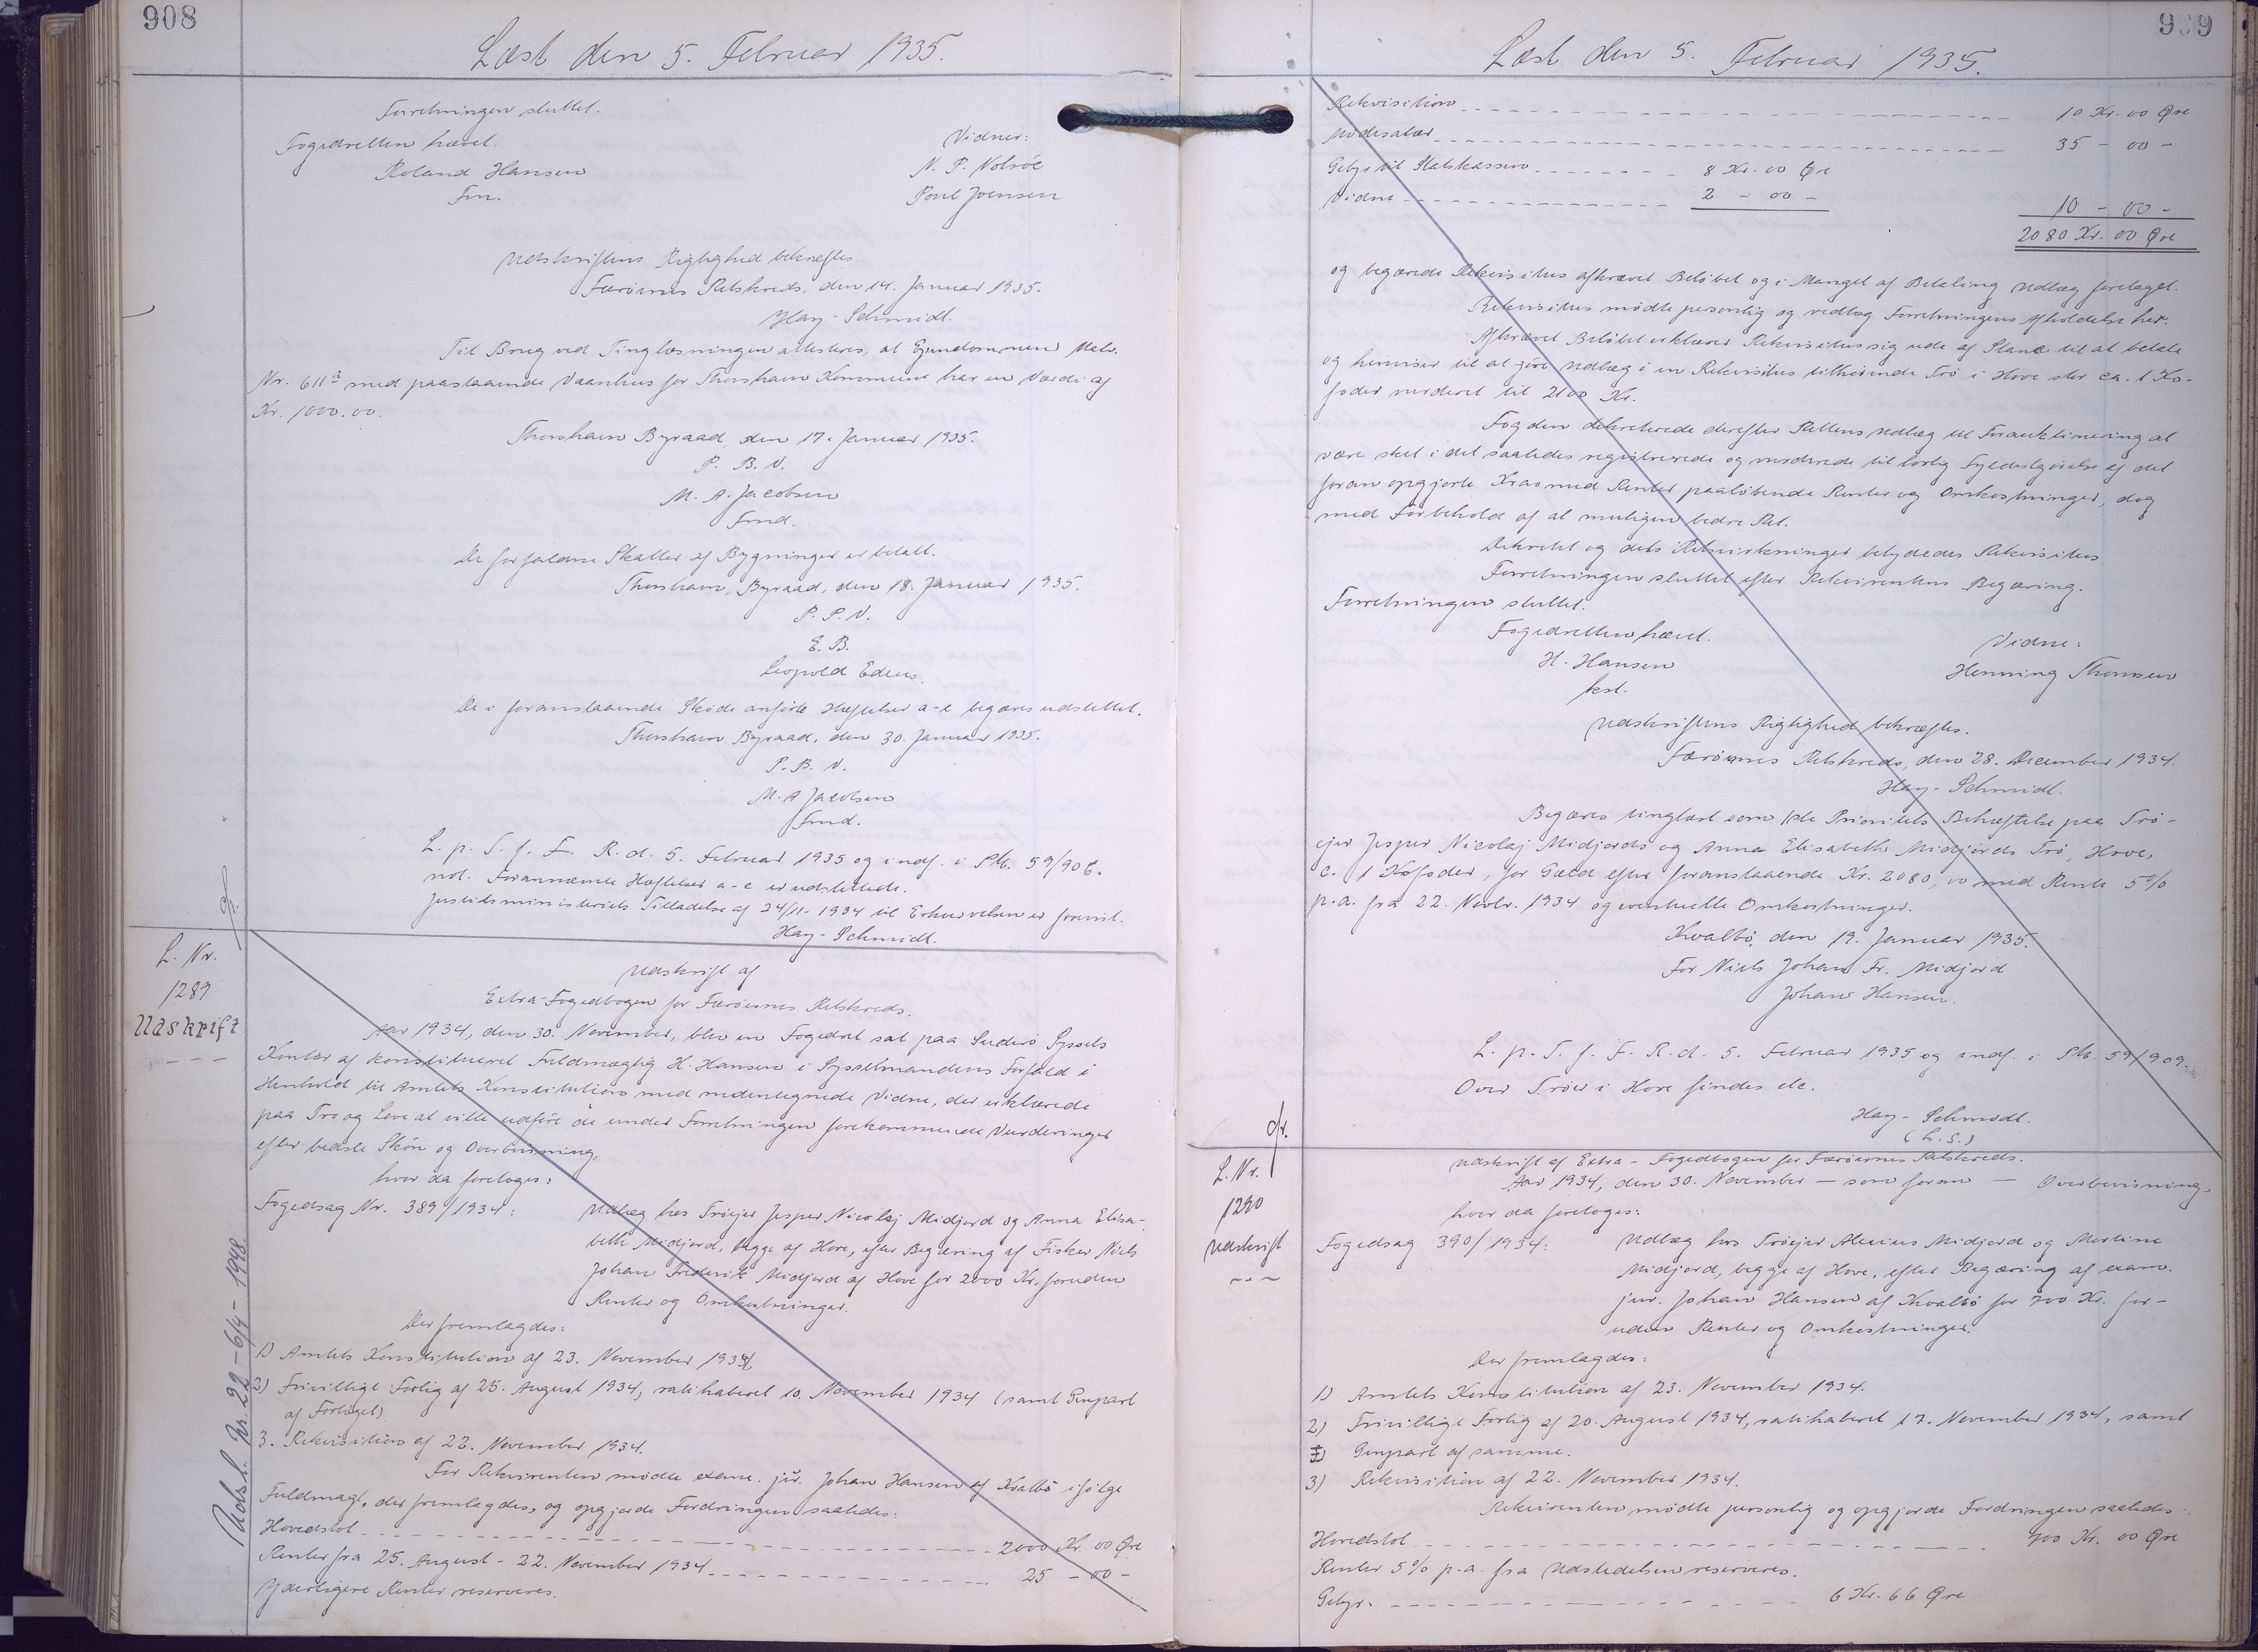 908
Læst den 5. Februar 1935.
Forretningen sluttet.
Fogedretten hævet.
Roland Hansen
Fm.
Vidner:
N. P. Nolsöe
Poul Joensen
Udskriftens Rigtighed bekræftes.
Færöernes Retskreds, den 14. Januar 1935.
Hay-Schmidt.
Til Brug ved Tinglæsningen attesteres, at Ejendommen Matr.
Nr. 611a med paastaaende Vaanhus for Thorshavn Kommune har en Værdi af
Kr. 1000.00.
Thorshavn Byraad, den 17. Januar 1935.
P. B. V.
M. A. Jacobsen
Fmd.
De forfaldne Skatter af Bygninger er betalt.
Thorshavn, Byraad, den 18. Januar 1935.
P. P. V.
E. B.
Leopold Edens.
De i foranstaaende Sköde anförte Hæftelser a-e begæres udslettet.
Thorshavn Byraad, den 30. Januar 1935.
P. B. V.
M. A Jacobsen
Fmd.
L. p. T. f. F. R. d. 5. Februar 1935 og indf. i Ptb. 59/906.
not. Forannævnte Hæftelser a-e er udslettede.
Justitsministeriets Tilladelse af 24/11-1934 til Erhvervelsen er forevist.
Hay-Schmidt.
L. Nr.
1289
Udskrift
Udskrift af
Extra-Fogedbogen for Færöernes Retskreds.
Aar 1934, den 30. November, blev en Fogedret sat paa Suderö Syssels
Kontor af konstitueret Fuldmægtig H. Hansen i Sysselmandens Forfald i
Henhold til Amtets Konstitution med medundertegnede Vidne, der erklærede
paa Tro og Love at ville udföre de under Forretningen forekommende Vurderinger
efter bedste Skön og Overbevisning,
hvor da foretoges:
Fogedsag Nr. 389/1934:
Udlæg hos Tröejer Jesper Nicolaj Midjord og Anna Elisa-
beth Midjord, begge af Hove, efter Begæring af Fisker Niels
Johan Frederik Midjord af Hove for 2000 Kr. foruden
Renter og Omkostninger.
Der fremlagdes:
1) Amtets Konstitution af 23. November 1934.
2) Frivilligt Forlig af 25. August 1934, ratihaberet 10. November 1934 (samt Genpart
af Forliget)
3. Rekvisition af 22. November 1934.
For Rekvirenten mödte exam. jur. Johan Hansen af Kvalbö ifölge
Fuldmagt, der fremlagdes, og opgjorde Fordringen saaledes:
Hovedstol 2000 Kr. 00 Öre
Renter fra 25. August - 22. November 1934 25 - 00 -
Yderligere Renter reserveres.
Udsl. Nr. 22 - 6/4 - 1948
909
Læst den 5. Februar 1935.
Rekvisition 10 Kr. 00 Öre
Mödesalær 35 - 00 -
Gebyr til Statskassen 8 Kr. 00 Öre
Vidne 2 - 00 -
10 - 00 -
2080 Kr. 00 Öre
og begærede Rekvisitus afkrævet Belöbet og i Mangel af Betaling Udlæg foretaget.
Rekvisitus mödte personlig og vedtog Forretningens Afholdelse her.
Afkrævet Belöbet erklærer Rekvisitus sig ude af Stand til at betale
og henviser til at göre Udlæg i en Rekvisitus tilhörende Trö i Hove stor ca. 1 Ko-
foder vurderet til 2100 Kr.
Fogden dekreterede derefter Rettens Udlæg til Forauktionering at
være sket i det saaledes registrerede og vurderede til lovlig Fyldestgörelse af det
foran opgjorte Krav med Renter paalöbende Renter og Omkostninger, dog
med Forbehold af al muligen bedre Ret.
Dekretet og dets Retsvirkninger betydedes Rekvisitus
Forretningen sluttet efter Rekvirentens Begæring.
Forretningen sluttet.
Fogedretten hævet.
H. Hansen
kst.
Vidne:
Henning Thomsen
Udskriftens Rigtighed bekræftes.
Færöernes Retskreds, den 28. December 1934.
Hay-Schmidt.
Begæres tinglæst som 1ste Prioritets Behæftelse paa Trö-
ejer Jesper Nicolaj Midjords og Anna Elisabeth Midjords Trö, Hove,
c. 1 Kofoder, for Gæld efter foranstaaende Kr. 2080,00 med Rente 5%
p.a. fra 22. Novbr. 1934 og eventuelle Omkostninger.
Kvalbö, den 19. Januar 1935.
For Niels Johan Fr. Midjord
Johan Hansen.
L. p. T. f. F. R. d. 5. Februar 1935 og indf. i Ptb. 59/909.
Over Tröer i Hove findes etc.
Hay-Schmidt.
(L.S.)
L. Nr.
1290
Udskrift
Udskrift af Extra-Fogedbogen for Færöernes Retskreds.
Aar 1934, den 30. November — som foran — Overbevisning,
hvor da foretoges:
Fogedsag 390/1934:
Udlæg hos Tröejer Alexius Midjord og Martine
Midjord, begge af Hove, efter Begæring af exam.
jur. Johan Hansen af Kvalbö for 700 Kr. for-
uden Renter og Omkostninger.
Der fremlagdes:
1) Amtets Konstitution af 23. November 1934.
2) Frivilligt Forlig af 20. August 1934, ratihaberet 17. November 1934, samt
Genpart af samme.
3) Rekvisition af 22. November 1934.
Rekvirenten mödte personlig og opgjorde Fordringen saaledes:
Hovedstol 700 Kr. 00 Öre
Renter 5% p.a. fra Udstedelsen reserveres.
Gebyr. 6 Kr. 66 Öre